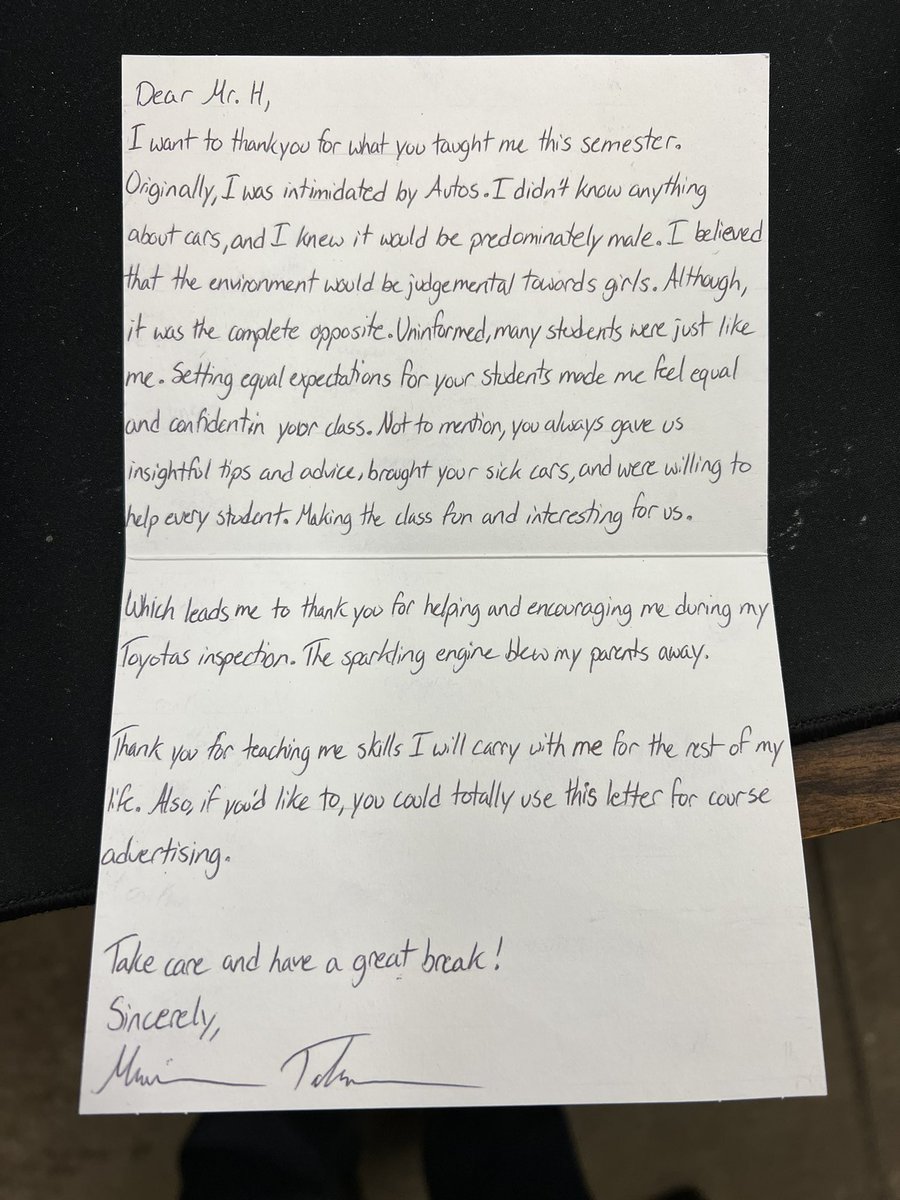 Dear Mr. H,
I want to thankyou for what you taught me this semester.
Originally, I was intimidated by Autos. I didn't know anything
about cars, and I knew it would be predominately male. I believed
that the environment would be judgemental towards girls. Although,
it was the complete opposite. Uninformed, many students were just like
me. Setting equal expectations for your students made me feel equal
and confident in your class. Not to mention, you always gave us
insightful tips and advice, brought your sick cars, and were willing to
help every student. Making the class fun and interesting for us.
Which leads me to thank you for helping and encouraging me during my
Toyotas inspection. The sparkling engine blew my parents away.
Thank you for teaching me skills I will carry with me for the rest of my
life. Also, if you'd like to, you could totally use this letter for course
advertising.
Take care and have a great break!
Sincerely,